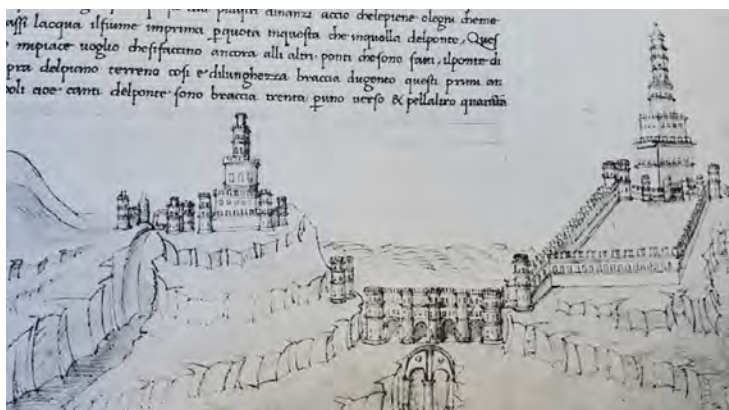 dinanzi accio chelepiene olegni cheme
assi lacqua ilfiume imprima pquota inquesta che inquella delponte, Ques
mipiace uoglio chesifaccino ancora alli altri ponti chesono fatti, ilponte di
pra delpiano terreno cosi e dilunghezza braccia dugento questi primi an
oli cioe canti delponte sono braccia trenta puno uerso & pellaltro quantita